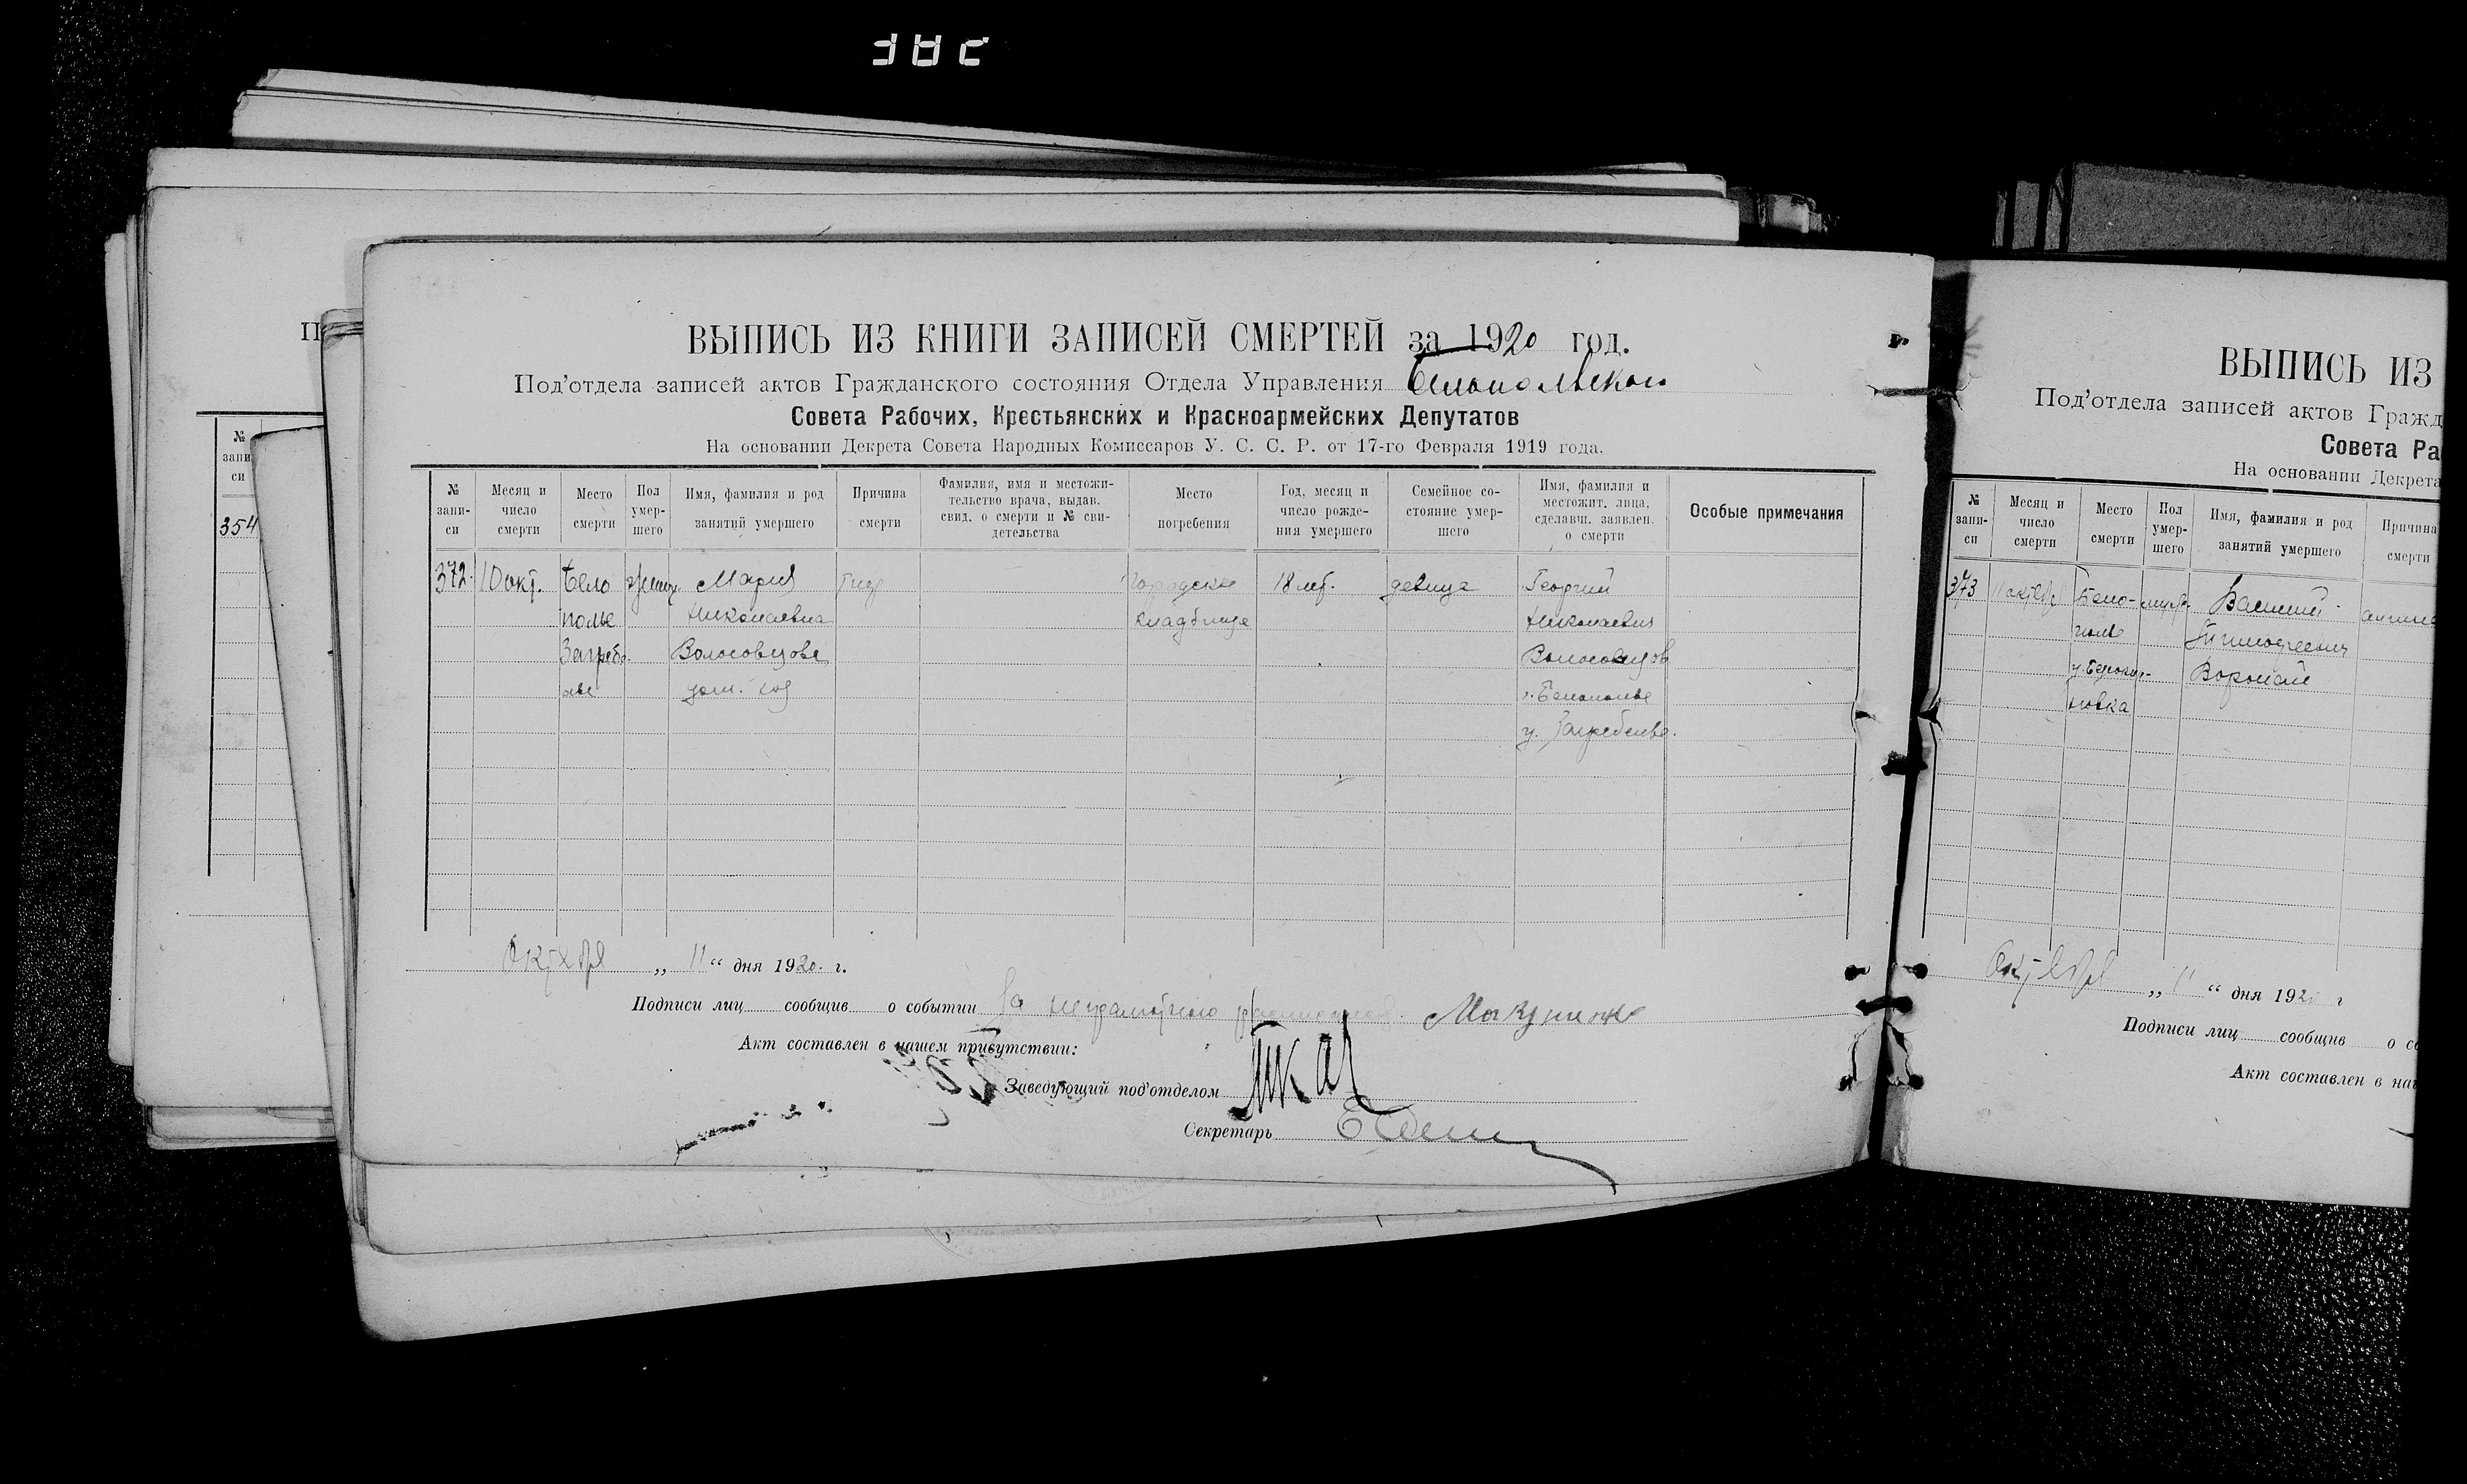 ВЫПИСЬ ИЗ КНИГИ ЗАПИСЕЙ СМЕРТЕЙ за 1920 год.
Под'отдела записей актов Гражданского состояния Отдела Управления Белопольского
Совета Рабочих, Крестьянских и Красноармейских Депутатов
На основании Декрета Совета Народных Комиссаров У. С. С. Р. от 17-го Февраля 1919 года.
№ запи-си
Месяц и число смерти
Место смерти
Пол умер-шего
Имя, фамилия и род занятий умершего
Причина смерти
Фамилия, имя и местожи-тельство врача, выдав. свид. о смерти и № сви-детельства
Место погребения
Год, месяц и число рожде-ния умершего
Семейное со-стояние умер-шего
Имя, фамилия и местожит. лица, сделавш. заявлен. о смерти
Особые примечания
372. 10 окт. Бело женск Мария городское 18 лет. девица Георгий
полье Николаевна кладбище Николаевич
Волосовцова Волосовцов
дом. хоз г. Белополье
Октября „ 11 “ дня 1920 г.
Подписи лиц сообщив о событии За неграмотного расписался
Акт составлен в нашем присутствии:
Заведующий под'отделом
Секретарь
№ запи си
354
ВЫПИСЬ ИЗ
Под'отдела записей актов Гражд
Совета Ра
На основании Декрета
№ запи-си
Месяц и число смерти
Место смерти
Пол умер-шего
Имя, фамилия и род занятий умершего
Причина смерти
373 11 октября Бело- Василий
полье Тимофеевич
новка
Октября „ 11 “ дня 192 г
Подписи лиц сообщив о со
Акт составлен в наш